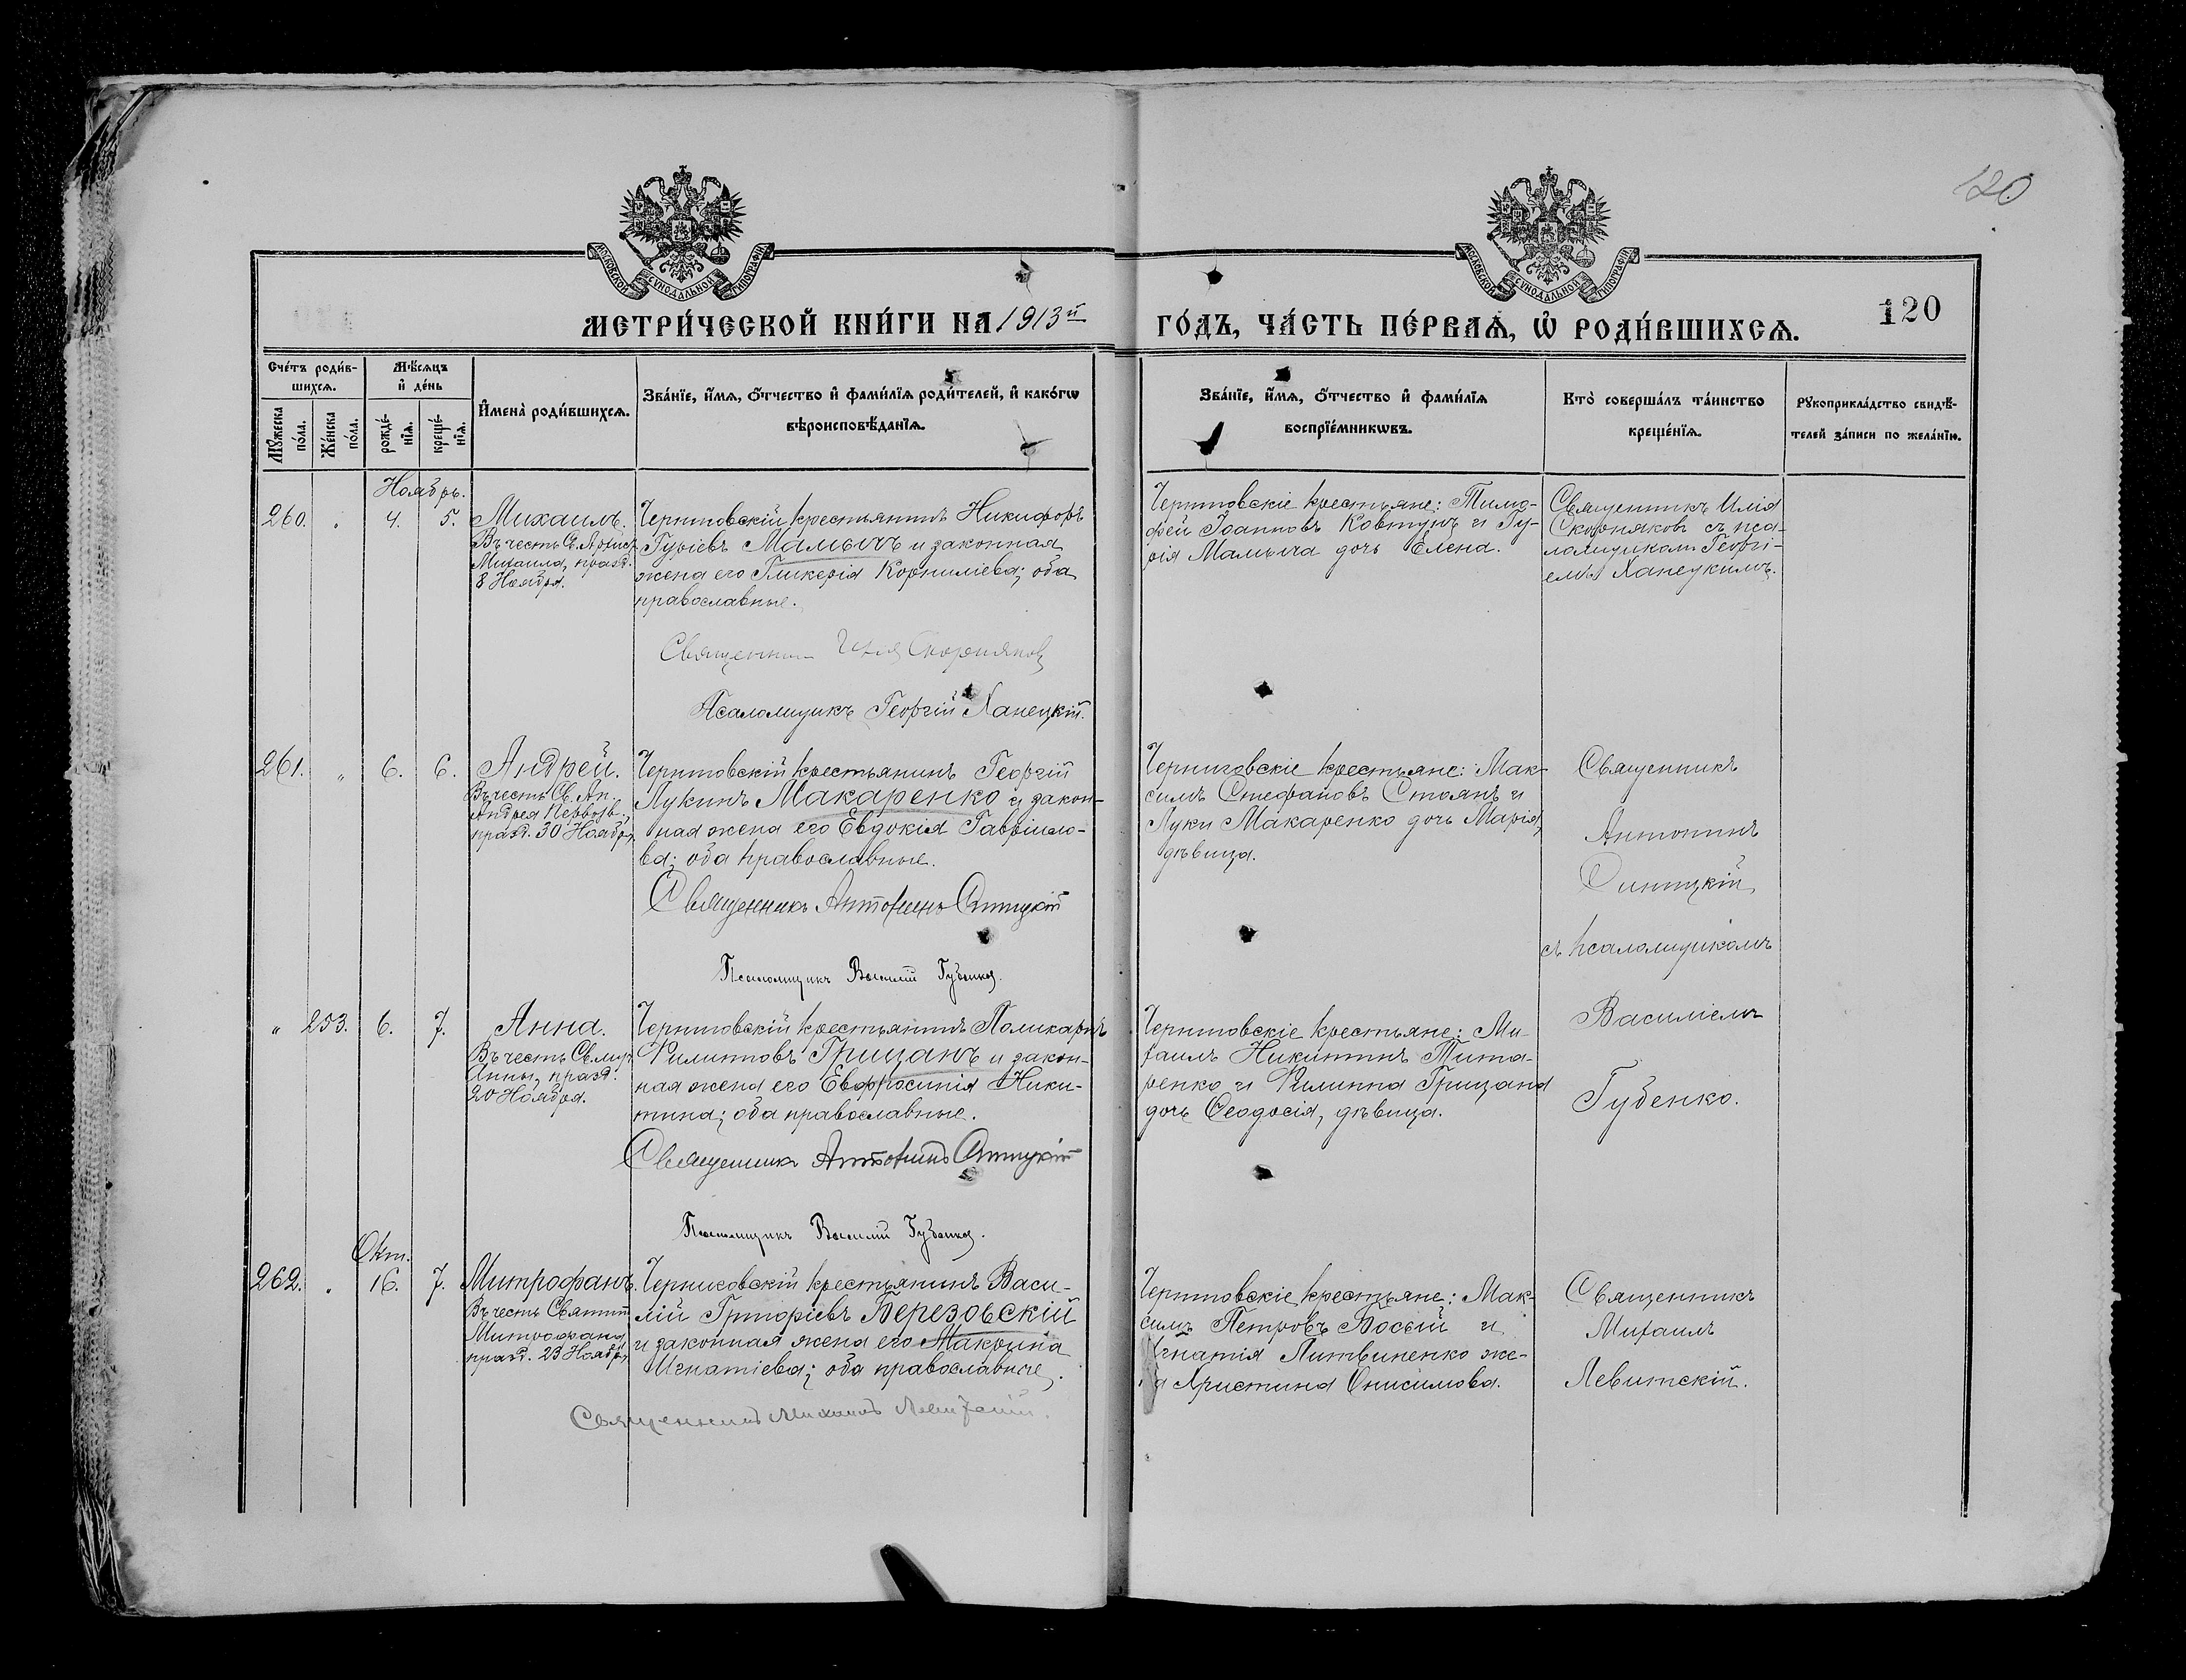 120
МОСКОВСКОЙ СѴНОДАЛЬНОЙ ТИПОГРАФІИ
МОСКОВСКОЙ СѴНОДАЛЬНОЙ ТИПОГРАФІИ
МЕТРИ́ЧЕСКОЙ КНИ́ГИ НА 1913й
ГО́ДЪ, ЧА́СТЬ ПЕ́РВАѦ, Ѽ РОДИ́ВШИХСѦ.
120
Сче́тъ роди́в-
шихсѧ.
Мѣ́сѧцъ
и҆ де́нь
Мꙋ́жеска
по́ла.
Же́нска
по́ла.
рожде́-
нїѧ.
креще́-
нїѧ.
И҆мена̀ роди́вшихсѧ.
Зва́нїе, и҆́мѧ, ѻ҆́тчество и҆ фами́лїѧ роди́телей, и҆ како́гѡ
вѣроисповѣ́данїѧ.
Зва́нїе, и҆́мѧ, ѻ҆́тчество и҆ фами́лїѧ
воспрїе́мникѡвъ.
Кто̀ соверша́лъ та́инство
креще́нїѧ.
Рꙋкоприкла́дство свидѣ́-
телей за́писи по жела́нїю.
Ноябрь.
260. „ 4. 5. Михаилъ.
Въ честь Св. Архист.
Михаила, празд.
8 Ноября.
Черниговскій крестьянинъ Никифоръ
Гуріевъ Мамычъ и законная
жена его Гликерія Корниліева; оба
православные.
Священник Илія Скорняковъ
Псаломщикъ Георгій Ханецкій.
Черниговскіе крестьяне: Тимо-
фей Іоанновъ Ковтунъ и Гу-
рія Мамыча дочь Елена.
Священникъ Илія
Скорняковъ съ пса-
ломщикомъ Георгі-
емъ Ханецкимъ.
261. „ 6. 6. Андрей.
Въ честь Св. Ап.
Андрея Первозв.,
празд. 30 Ноября.
Черниговскій крестьянинъ Георгій
Лукинъ Макаренко и закон-
ная жена его Евдокія Гавріило-
ва; оба православные.
Священникъ Антонинъ Синицкій
Псаломщикъ Василій Губенко.
Черниговскіе крестьяне: Мак-
симъ Стефановъ Стоянъ и
Луки Макаренко дочь Марія,
дѣвица.
Священникъ
Антонинъ
Синицкій
съ псаломщикомъ
Василіемъ
Губенко.
„ 253. 6. 7. Анна.
Въ честь Св. муч.
Анны, празд.
20 Ноября.
Черниговскій крестьянинъ Поликарпъ
Филипповъ Грицанъ и закон-
ная жена его Евфросинія Ники-
тина; оба православные.
Священникъ Антонинъ Синицкій
Псаломщикъ Василій Губенко.
Черниговскіе крестьяне: Ми-
хаилъ Никитинъ Тита-
ренко и Филиппа Грицана
дочь Ѳеодосія, дѣвица.
Окт.
262. „ 16. 7. Митрофанъ.
Въ честь Святит.
Митрофана
празд. 23 Ноября
Черниговскій крестьянинъ Васи-
лій Григоріевъ Березовскій
и законная жена его Макрина
Игнатіева; оба православные.
Священникъ Михаилъ Левитскій.
Черниговскіе крестьяне: Мак-
симъ Петровъ Босый и
Игнатія Литвиненко же-
на Христина Онисимова.
Священникъ
Михаилъ
Левитскій.